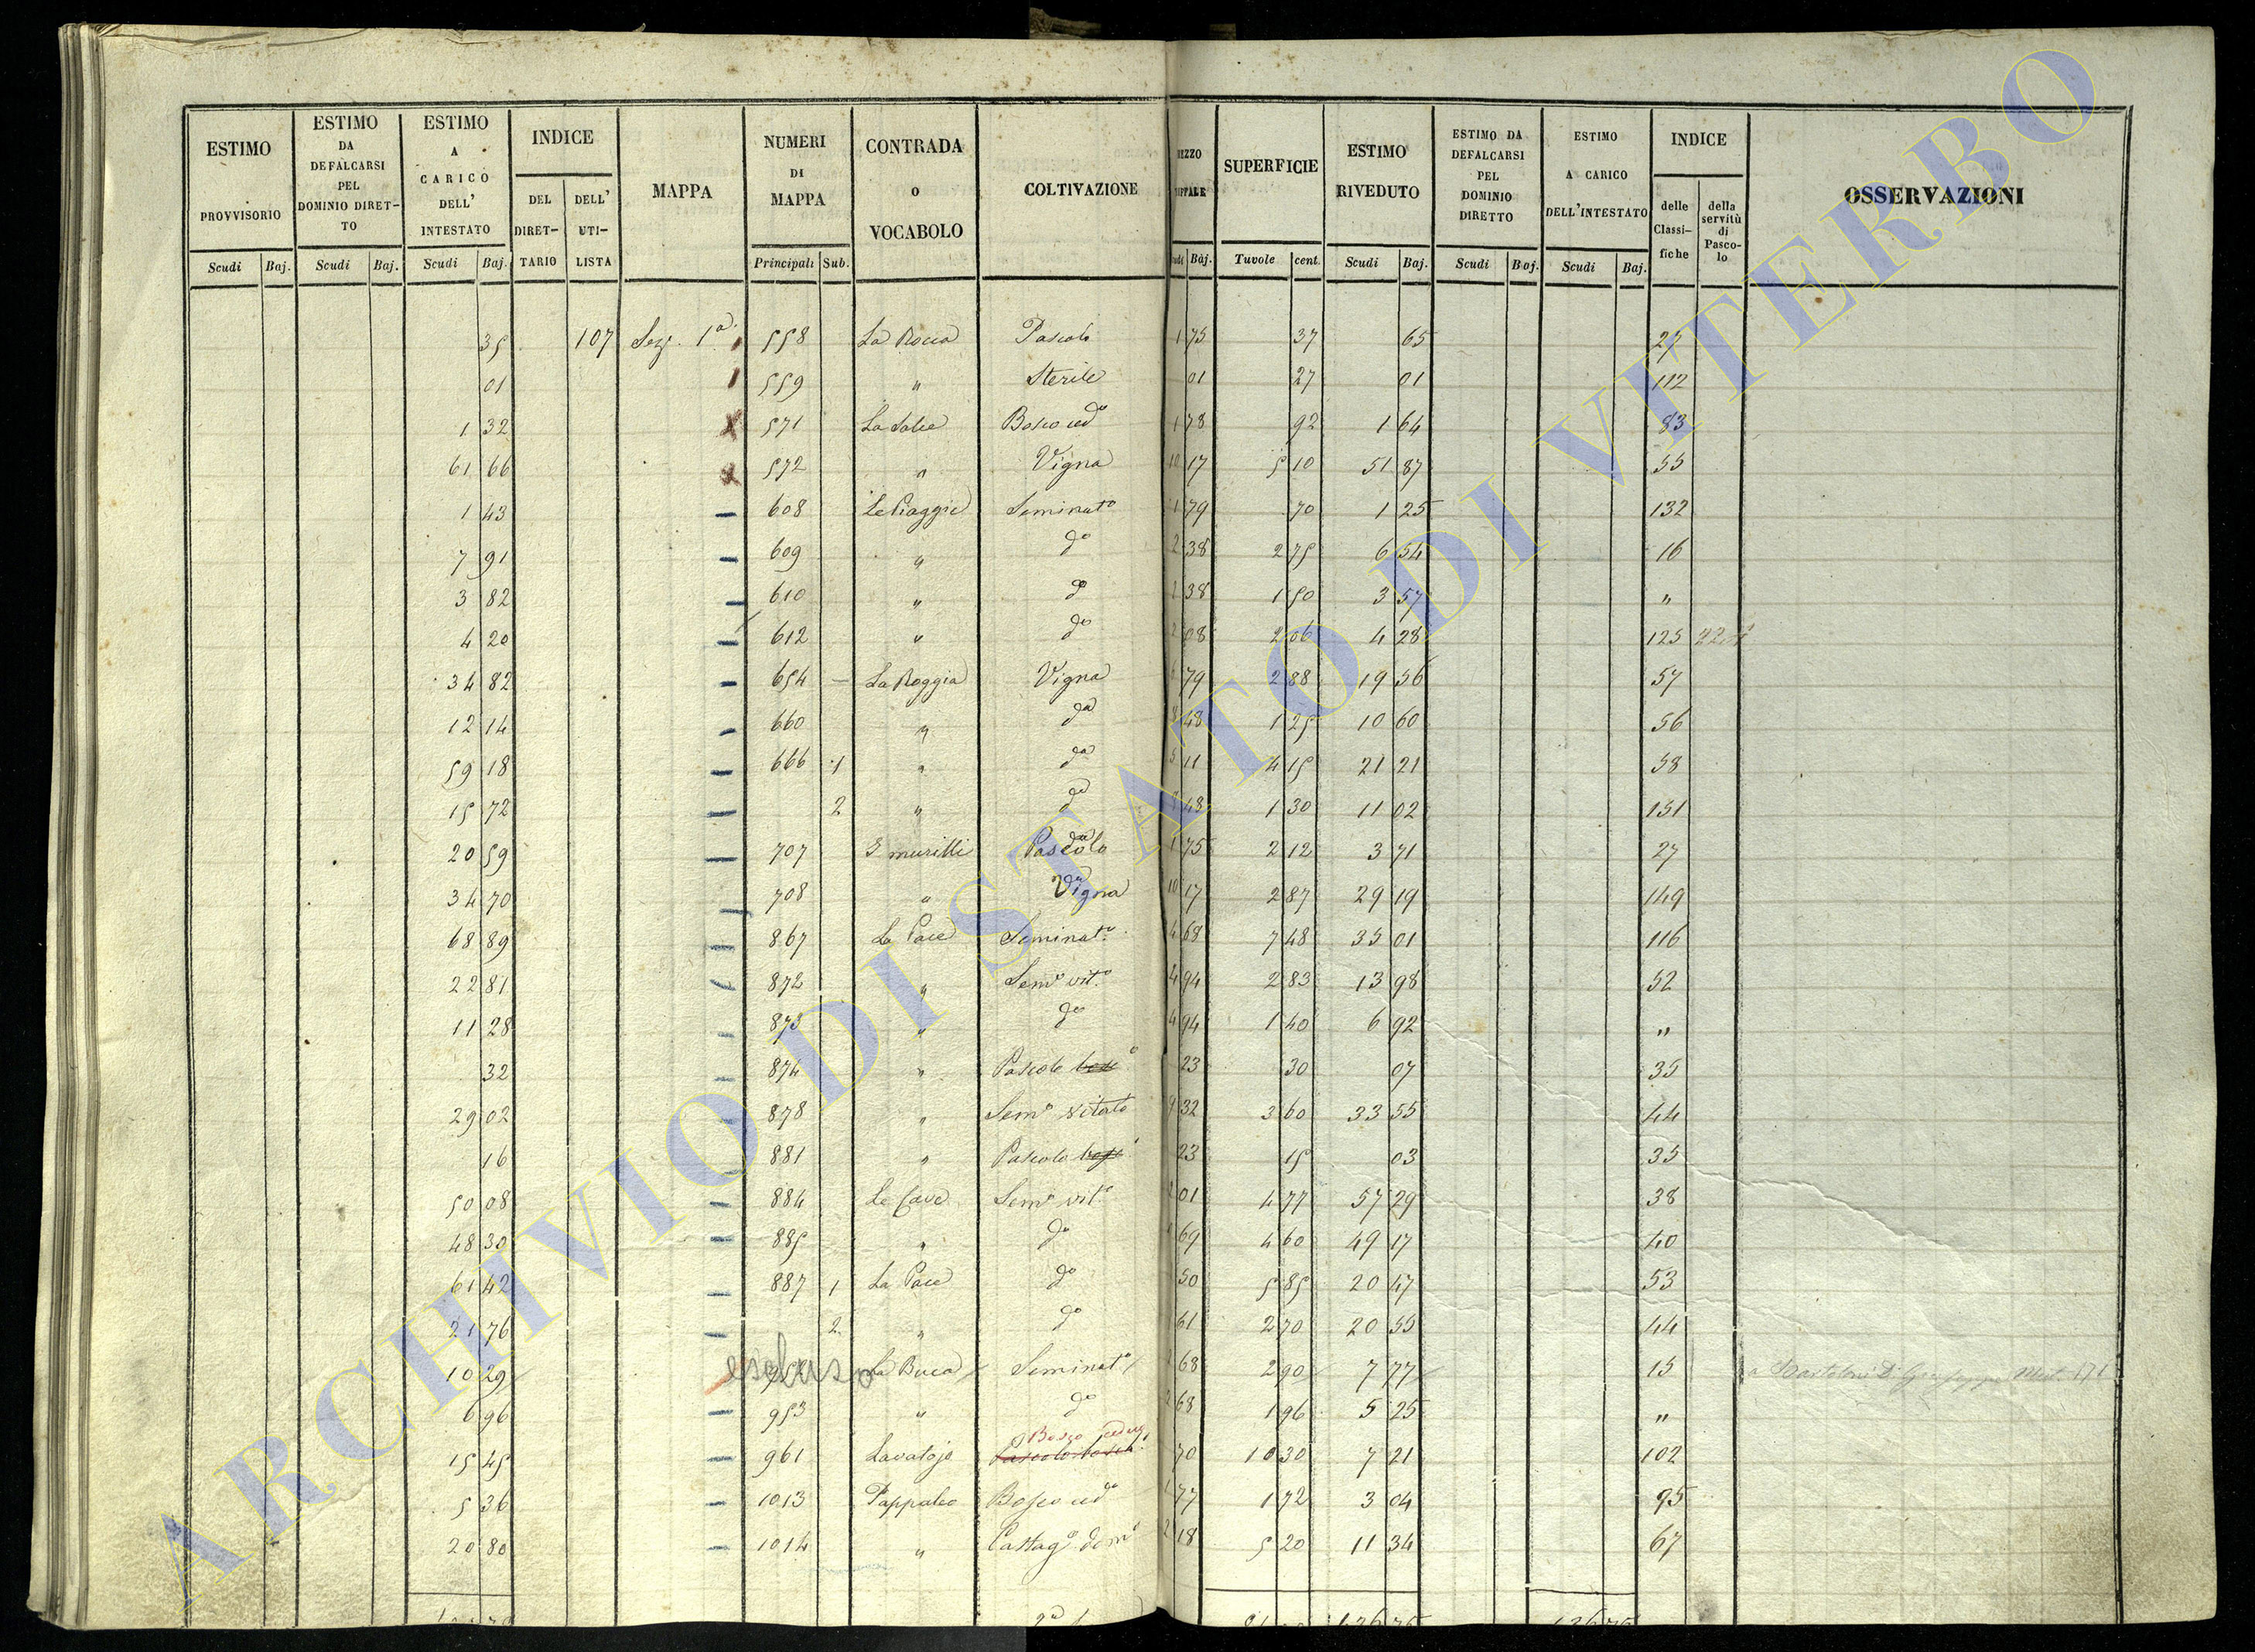 ESTIMO PROVVISORIO
ESTIMO DA DEFALCARSI PEL DOMINIO DIRETTO
ESTIMO A CARICO DELL' INTESTATO
INDICE
DEL DIRETTARIO
DELL' UTILISTA
MAPPA
NUMERI DI MAPPA
CONTRADA O VOCABOLO
COLTIVAZIONE
SUPERFICIE
ESTIMO RIVEDUTO
ESTIMO DA DEFALCARSI PEL DOMINIO DIRETTO
ESTIMO A CARICO DELL'INTESTATO
INDICE
delle Classifiche
della servitù di Pascolo
OSSERVAZIONI
Scudi Baj. Scudi Baj. Scudi Baj. Principali Sub. Baj. Tavole cent. Scudi Baj. Scudi Baj. Scudi Baj.
35 107 Sez. 1a 558 La Rocca Pascolo 1 75 37 65 27
01 559 " Sterile 01 27 01 112
1 32 571 Bosco cedo 1 78 92 1 64 83
61 66 572 " Vigna 10 17 5 10 51 87 55
1 43 608 Le Piaggie Seminato 1 79 70 1 25 132
7 91 609 " do 2 38 2 75 6 54 16
3 82 610 " do 2 38 1 50 3 57 "
4 20 612 " do 2 08 2 06 4 28 125
34 82 654 – La Roggia Vigna 6 79 2 88 19 56 57
12 14 660 " da 8 48 1 25 10 60 56
59 18 666 1 " da 5 11 4 15 21 21 58
15 72 2 " da 8 48 1 30 11 02 151
20 59 707 I murilli Pascolo 1 75 2 12 3 71 27
34 70 708 " Vigna 10 17 2 87 29 19 149
68 89 867 La Pace Seminato 4 68 7 48 35 01 116
22 81 872 " Semo vito 4 94 2 83 13 98 52
11 28 873 " do 4 94 1 40 6 92 "
32 874 " Pascolo 23 30 07 35
29 02 878 " Semo vitato 9 32 3 60 33 55 44
16 881 " Pascolo 23 15 03 35
50 08 884 Le Cave Semo vito 01 4 77 57 29 38
48 30 885 " do 69 4 60 49 17 40
61 42 887 1 La Pace do 50 5 85 20 47 53
21 76 2 " do 61 2 70 20 55 44
10 29 escluso La Buca Seminato 2 68 2 90 7 77 15
6 96 953 " do 2 68 1 96 5 25 "
Bosco
15 45 961 Lavatojo 70 10 30 7 21 102
5 36 1013 Pappaleo Bosco cedo 1 77 1 72 3 04 95
20 80 1014 " Castago domo 2 18 5 20 11 34 67
ARCHIVIO DI STATO DI VITERBO